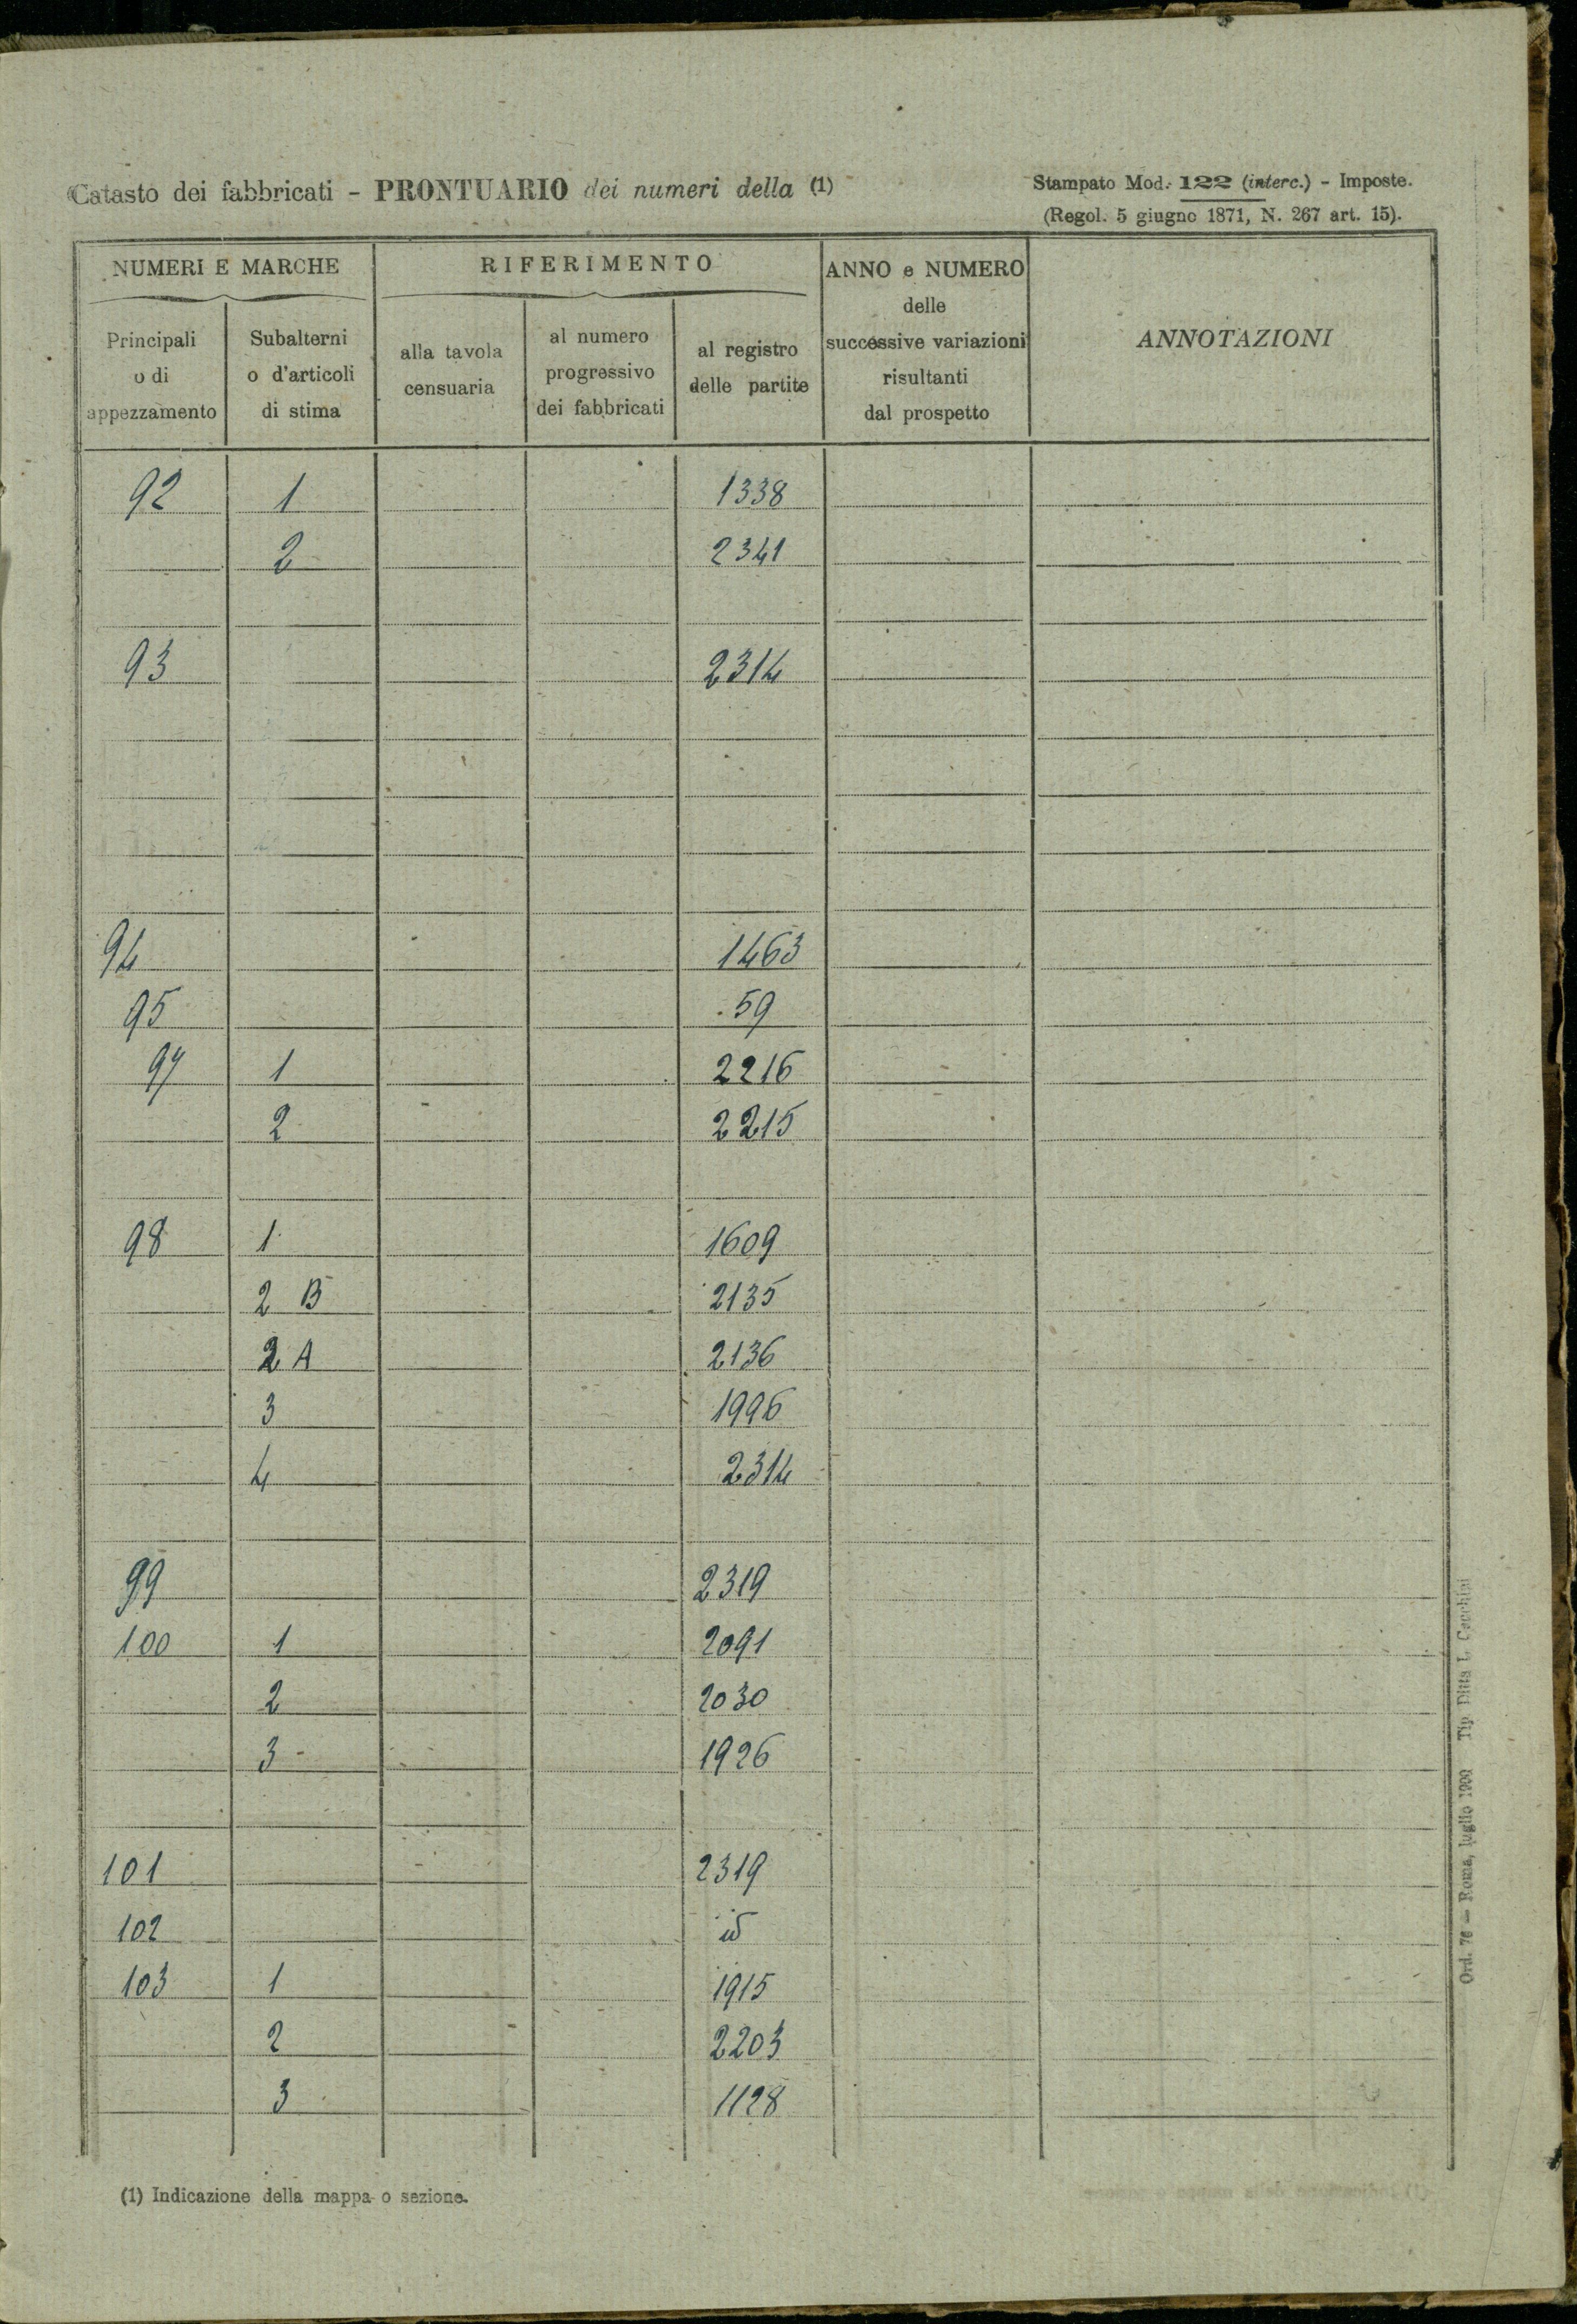 Catasto dei fabbricati - PRONTUARIO dei numeri della (1)
Stampato Mod. 122 (interc.) - Imposte.
(Regol. 5 giugno 1871, N. 267 art. 15).
NUMERI E MARCHE
RIFERIMENTO
ANNO e NUMERO
delle
successive variazioni
risultanti
dal prospetto
ANNOTAZIONI
Principali
o di
appezzamento
Subalterni
o d'articoli
di stima
alla tavola
censuaria
al numero
progressivo
dei fabbricati
al registro
delle partite
92 1 1338
2 2341
93 2314
94 1463
95 59
97 1 2216
2 2215
98 1 1609
2 B 2135
2 A 2136
3 1996
4 2314
99 2319
100 1 2091
2 2030
3 1926
101 2319
102 id
103 1 1915
2 2203
3 1128
(1) Indicazione della mappa o sezione.
Ord. 76 — Roma, luglio 1909 Tip. Ditta L. Cecchini